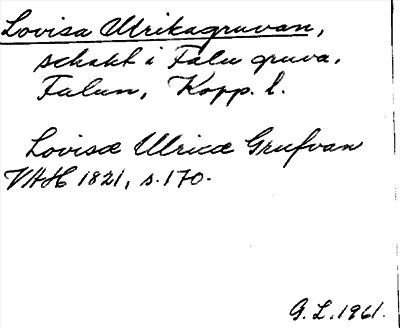 Lovisa Ulrikagruvan,
schakt i Falu gruva,
Falun, Kopp. l.
Lovisæ Ulricæ Grufvan
VAH 1821, s. 170.
G. L. 1961.